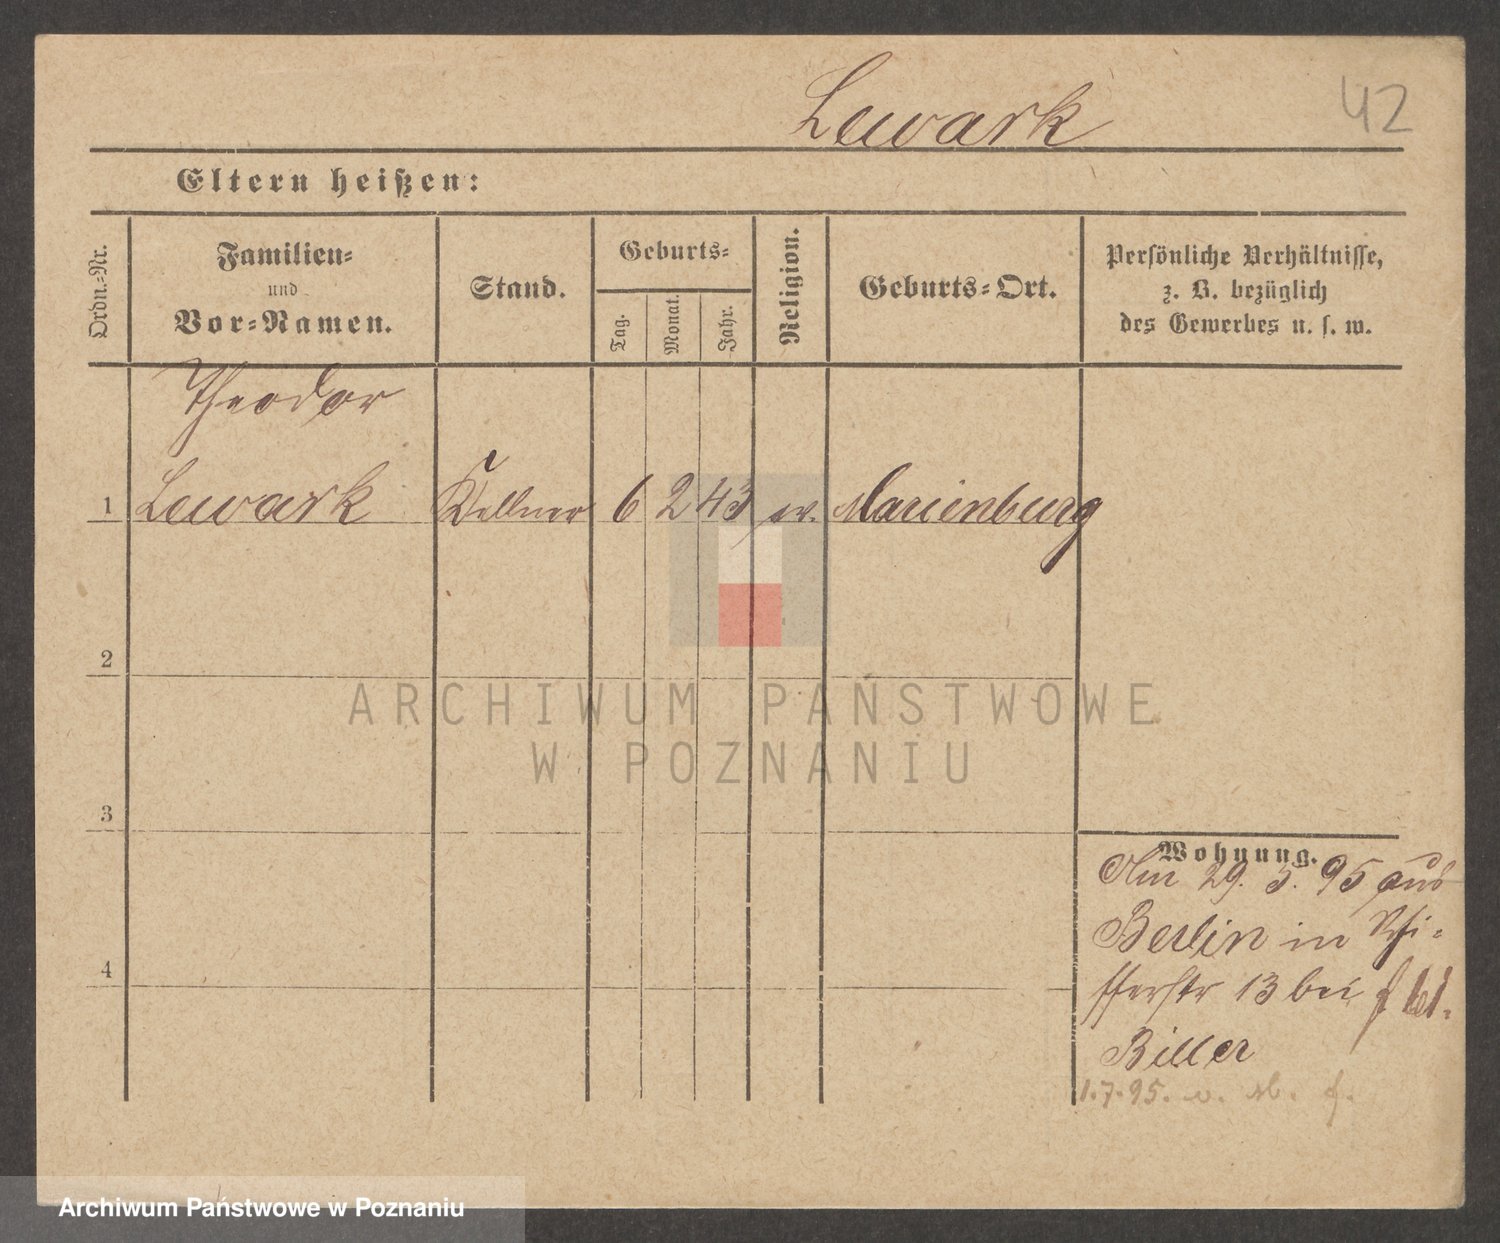 Lewark
42
Eltern heißen:
Ordn.-Nr.
Familien-
und
Vor-Namen.
Stand.
Geburts-
Tag.
Monat.
Jahr.
Religion.
Geburts-Ort.
Persönliche Verhältnisse,
z. B. bezüglich
des Gewerbes u. s. w.
Theodor
1 Lewark Kellner 6 2 43 ev. Marienburg
2
3
4
Wohnung.
Am 29. 5. 95 aus
Berlin in
13 bei
Biller
1.7.95. v.
ARCHIWUM PAŃSTWOWE
W POZNANIU
Archiwum Państwowe w Poznaniu